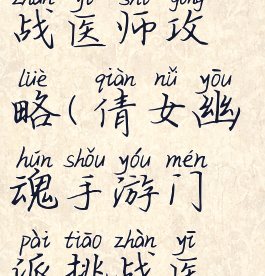 zhàn yī shī gōng
战医师攻
lüè qiàn nǚ yōu
略(倩女幽
hún shǒu yóu mén
魂手游门
pài tiāo zhàn yī
派挑战医